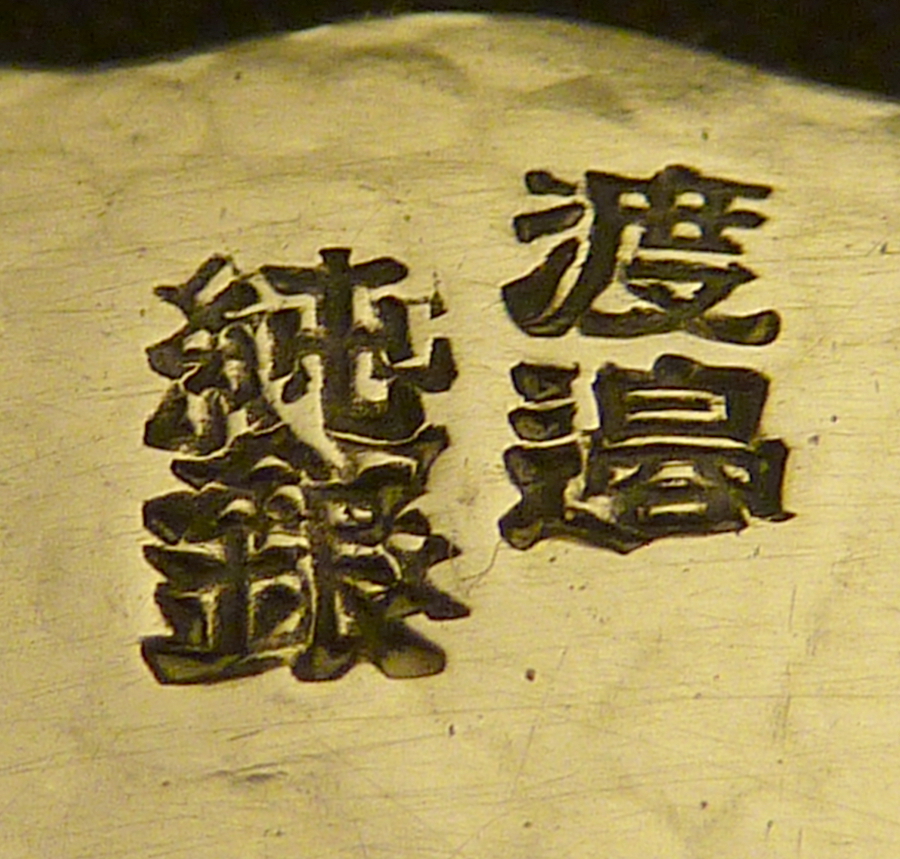 渡邉
純銀